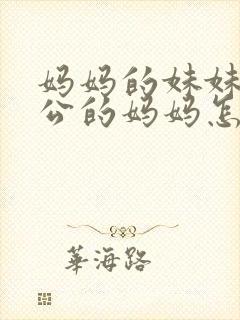 妈妈的妹妹
公的妈妈怎
華海路